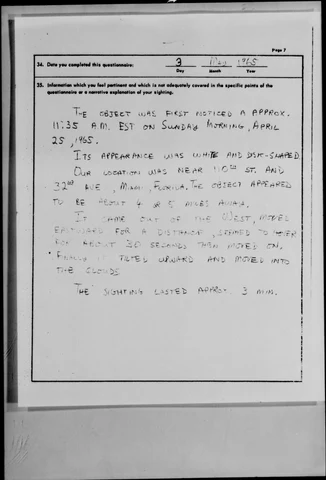 Page 7
34. Date you completed this questionnaire: 3 May 1965
Day Month Year
35. Information which you feel pertinent and which is not adequately covered in the specific points of the
questionnaire or a narrative explanation of your sighting.
THE OBJECT WAS FIRST NOTICED A APPROX.
11:35 A.M. EST ON SUNDAY MORNING, APRIL
25, 1965.
ITS APPEARANCE WAS WHITE AND DISK-SHAPED.
OUR LOCATION WAS NEAR 110TH ST. AND
32ND AVE, MIAMI, FLORIDA. THE OBJECT APPEARED
TO BE ABOUT 4 OR 5 MILES AWAY.
IT CAME OUT OF THE WEST, MOVED
EASTWARD FOR A DISTANCE, SEEMED TO HOVER
FOR ABOUT 30 SECONDS THEN MOVED ON.
FINALLY IT TILTED UPWARD AND MOVED INTO
THE CLOUDS
THE SIGHTING LASTED APPROX 3 MIN.